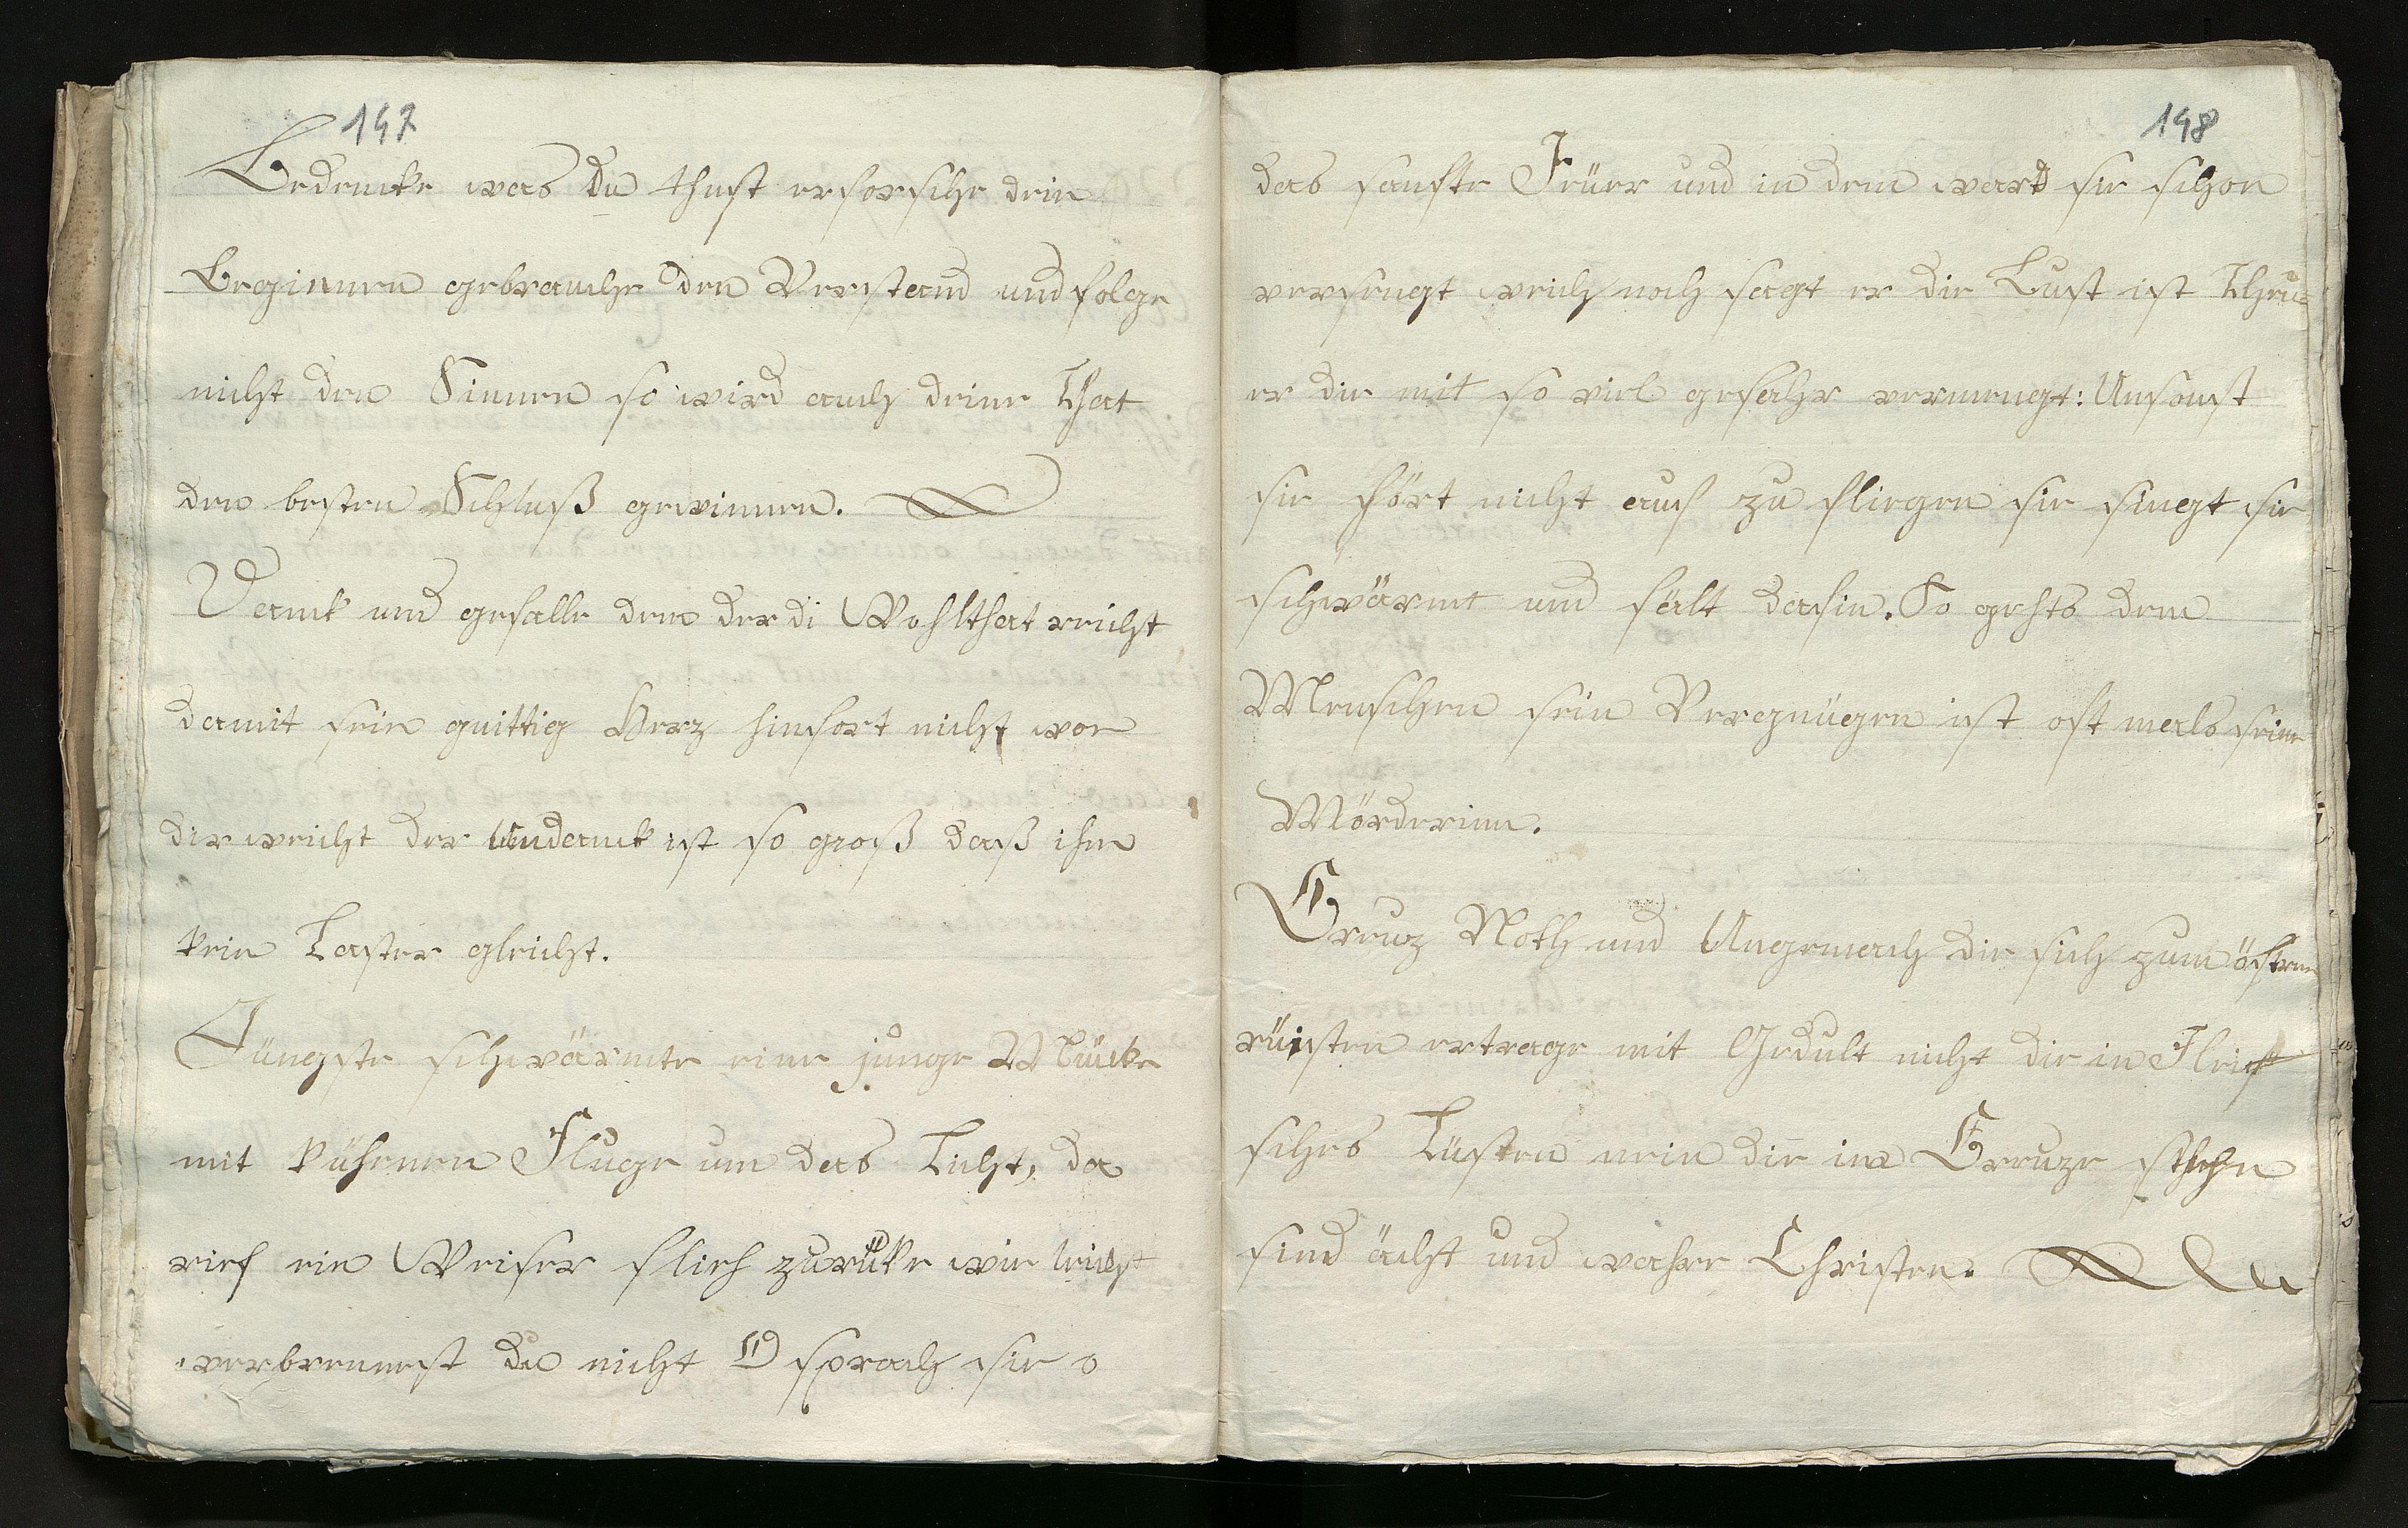 147
Bedencke was du thust erforsche dein
Beginnen gebrauche den Verstand und folge
nicht den Sinnen so wird auch deine That
den besten Schluß gewinnen.
Danck und gefalle dem der di Wohlthat reicht
damit sein guittig Herz hinfort nicht von
dir weicht der Undanck ist so groß daß ihm
kein Laster gleicht.
Jüngste schwärmte eine junge Mücke
mit kühenen Fluge um das Licht, da
rief ein Weiser flieh zurücke wie leicht
verbrennest du nicht O sprach sie o
148
das sanfte Feüer und in dem ward sie schon
versengt weich noch sagt er die Lust ist Theu=
er die mit so viel gefahr vermengt: Umsonst
sie hört nicht auf zu fliegen sie singt sie
schwärmt und fält dahin. So gehts dem
Menschen sein Vergnüegen ist oft mals seine
Mörderinn.
Creuz Noth und Ungemach die sich zum öftern
rüisten ertrage mit Gedult nicht die in Fleis
sches Lüsten nein die im Creuze stehen
sind ächt und wahre Christen.